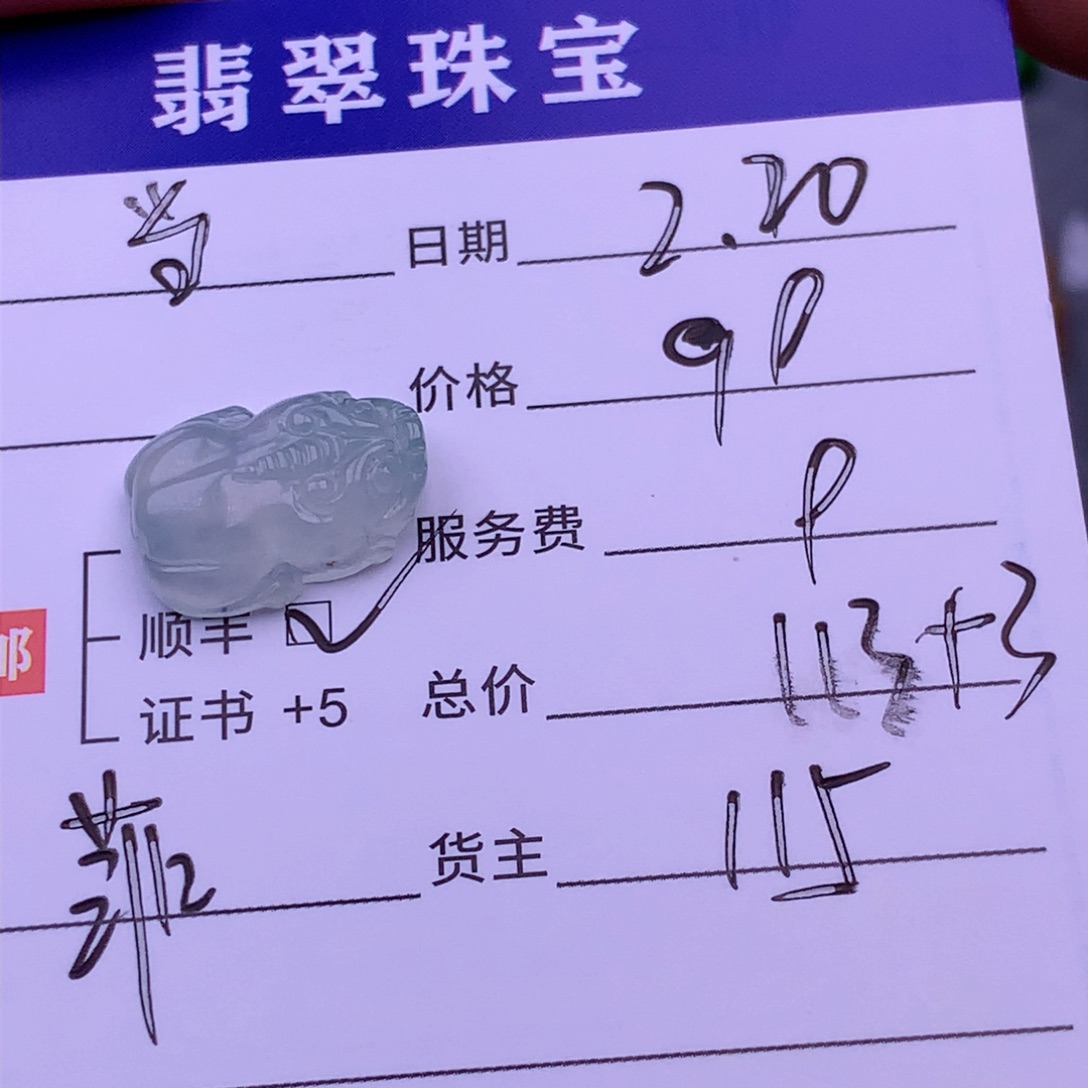 翡翠珠宝
当 日期 2.20
价格 90
服务费
邮
顺丰 ☑
总价 113+3
证书 +5
货主 115